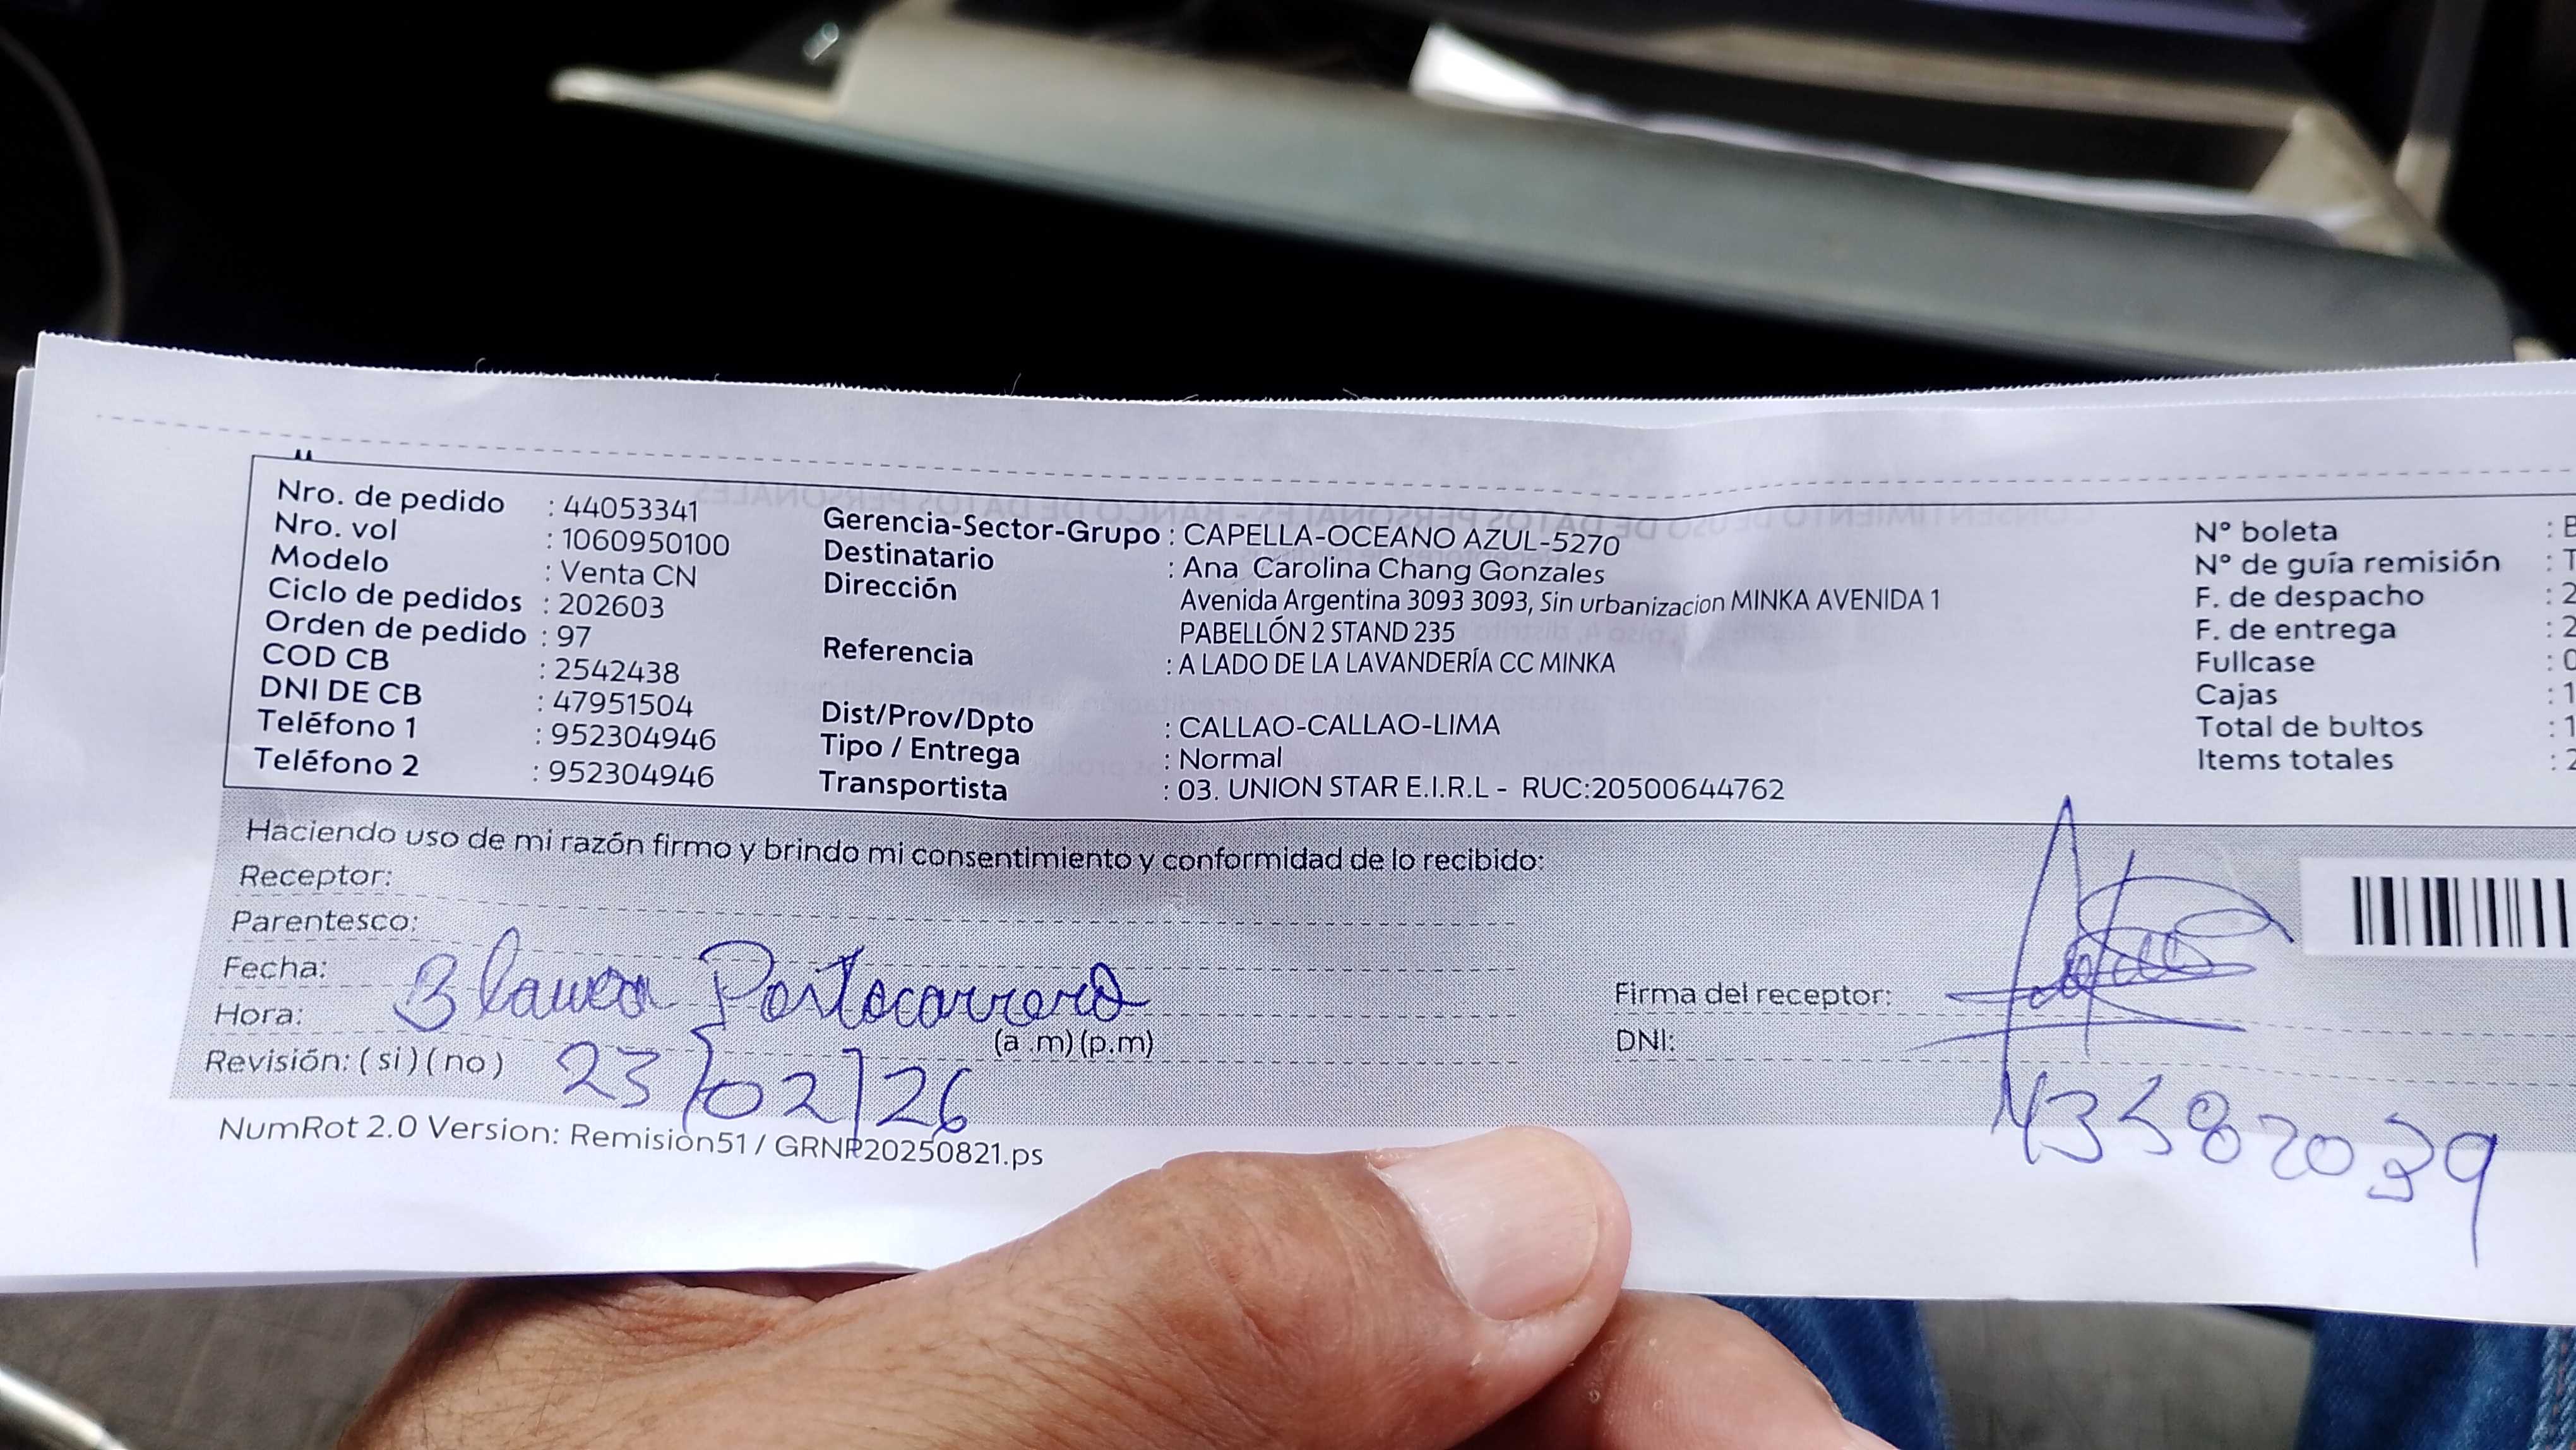 Nro. de pedido : 44053341
Nro. vol : 1060950100
Modelo : Venta CN
Ciclo de pedidos : 202603
Orden de pedido : 97
COD CB : 2542438
DNI DE CB : 47951504
Teléfono 1 : 952304946
Teléfono 2 : 952304946
Gerencia-Sector-Grupo : CAPELLA-OCEANO AZUL-5270
Destinatario : Ana Carolina Chang Gonzales
Dirección Avenida Argentina 3093 3093, Sin urbanizacion MINKA AVENIDA 1
PABELLÓN 2 STAND 235
Referencia : A LADO DE LA LAVANDERÍA CC MINKA
Dist/Prov/Dpto : CALLAO-CALLAO-LIMA
Tipo / Entrega : Normal
Transportista : 03. UNION STAR E.I.R.L - RUC:20500644762
N° boleta : B
N° de guía remisión : T
F. de despacho : 2
F. de entrega : 2
Fullcase : 0
Cajas : 1
Total de bultos : 1
Items totales : 2
Haciendo uso de mi razón firmo y brindo mi consentimiento y conformidad de lo recibido:
Receptor:
Parentesco:
Fecha:
Blanca Portocarrero
Hora: (a .m) (p.m)
Revisión: ( si ) ( no ) 23/02/26
Firma del receptor:
DNI:
NumRot 2.0 Version: Remision51 / GRNP20250821.ps